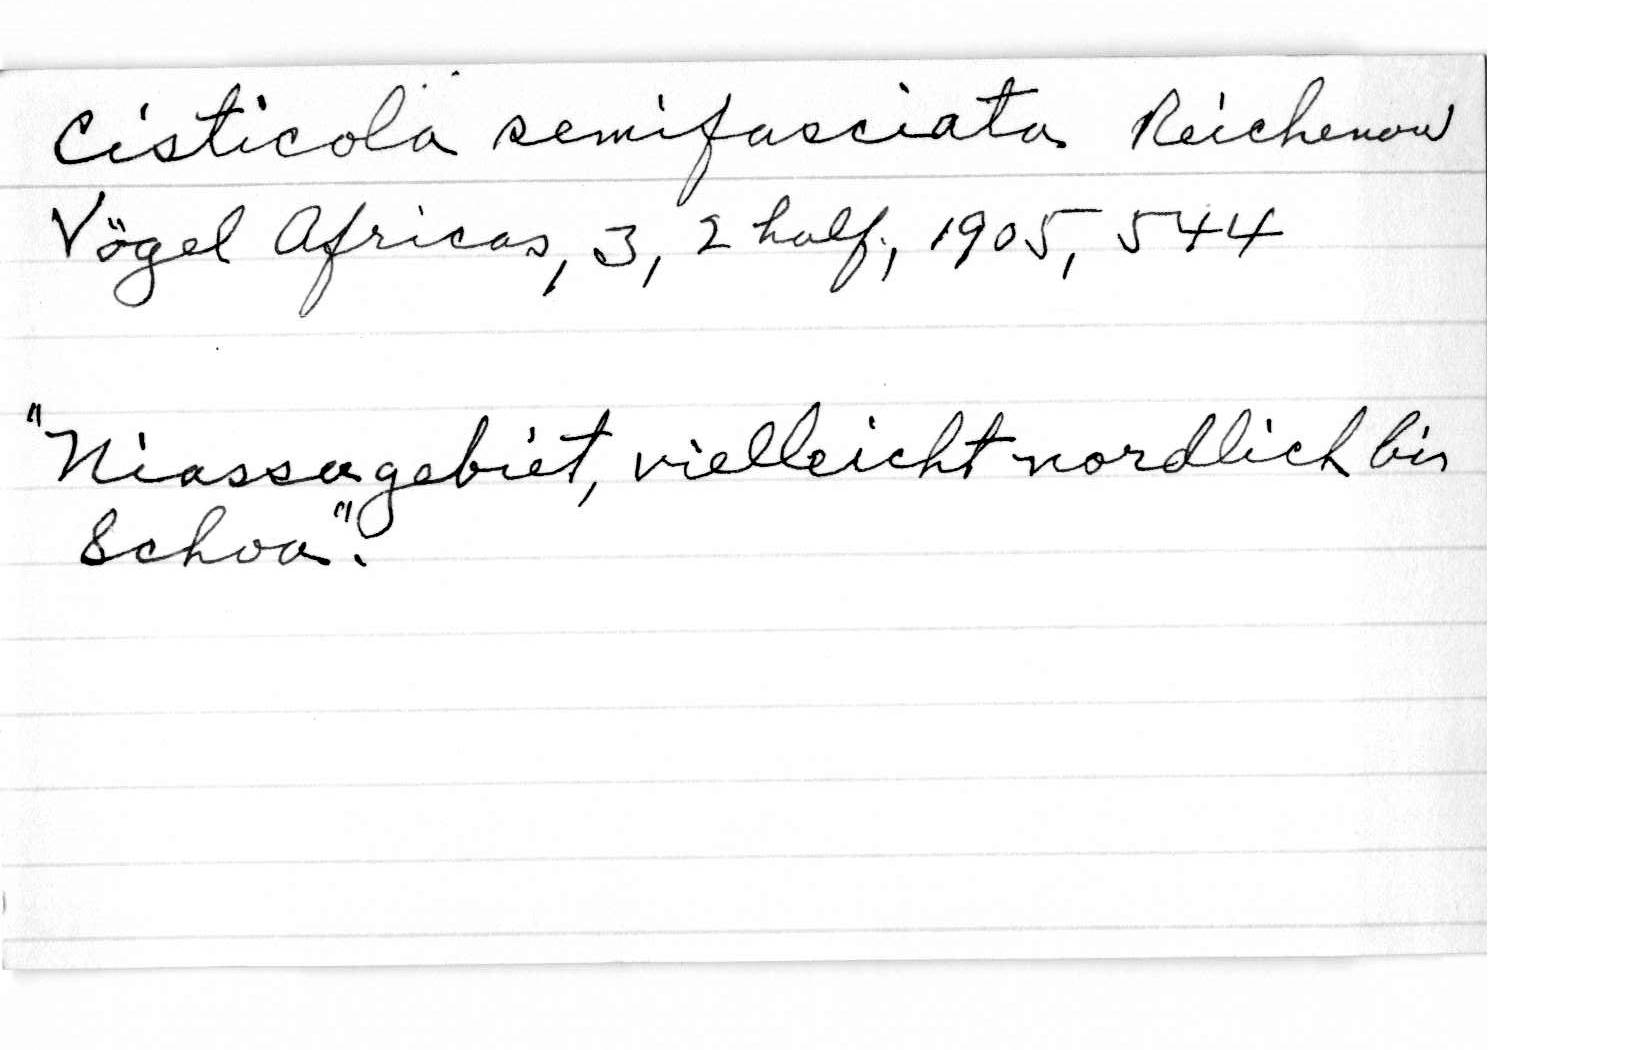 Cisticola semifasciata Reichenow
Vögel Africas, 3, 2 half., 1905, 544
"Niassagebiet, vielleicht nordlich bis
Schoa".